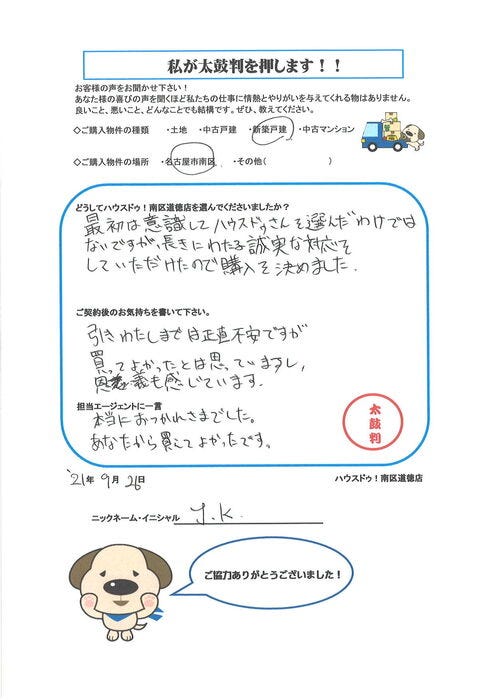 私が太鼓判を押します！！
お客様の声をお聞かせ下さい！
あなた様の喜びの声を聞くほど私たちの仕事に情熱とやりがいを与えてくれる物はありません。
良いこと、悪いこと、どんなことでも結構です。ぜひ、教えてください。
◇ご購入物件の種類 ・土地 ・中古戸建 ・新築戸建 ・中古マンション
◇ご購入物件の場所 ・名古屋市南区 ・その他( )
どうしてハウスドゥ！南区道徳店を選んでくださいましたか？
最初は意識してハウスドゥさんを選んだわけでは
ないですが、長きにわたる誠実な対応を
していただけたので購入を決めました.
ご契約後のお気持ちを書いて下さい。
引きわたしまでは正直不安ですが
買ってよかったとは思っていますし,
恩義も感じています.
担当エージェントに一言
本当におつかれさまでした。
あなたから買えてよかったです。
太鼓判
'21年 9月 26日
ハウスドゥ！南区道徳店
ニックネーム・イニシャル J.K.
ご協力ありがとうございました！